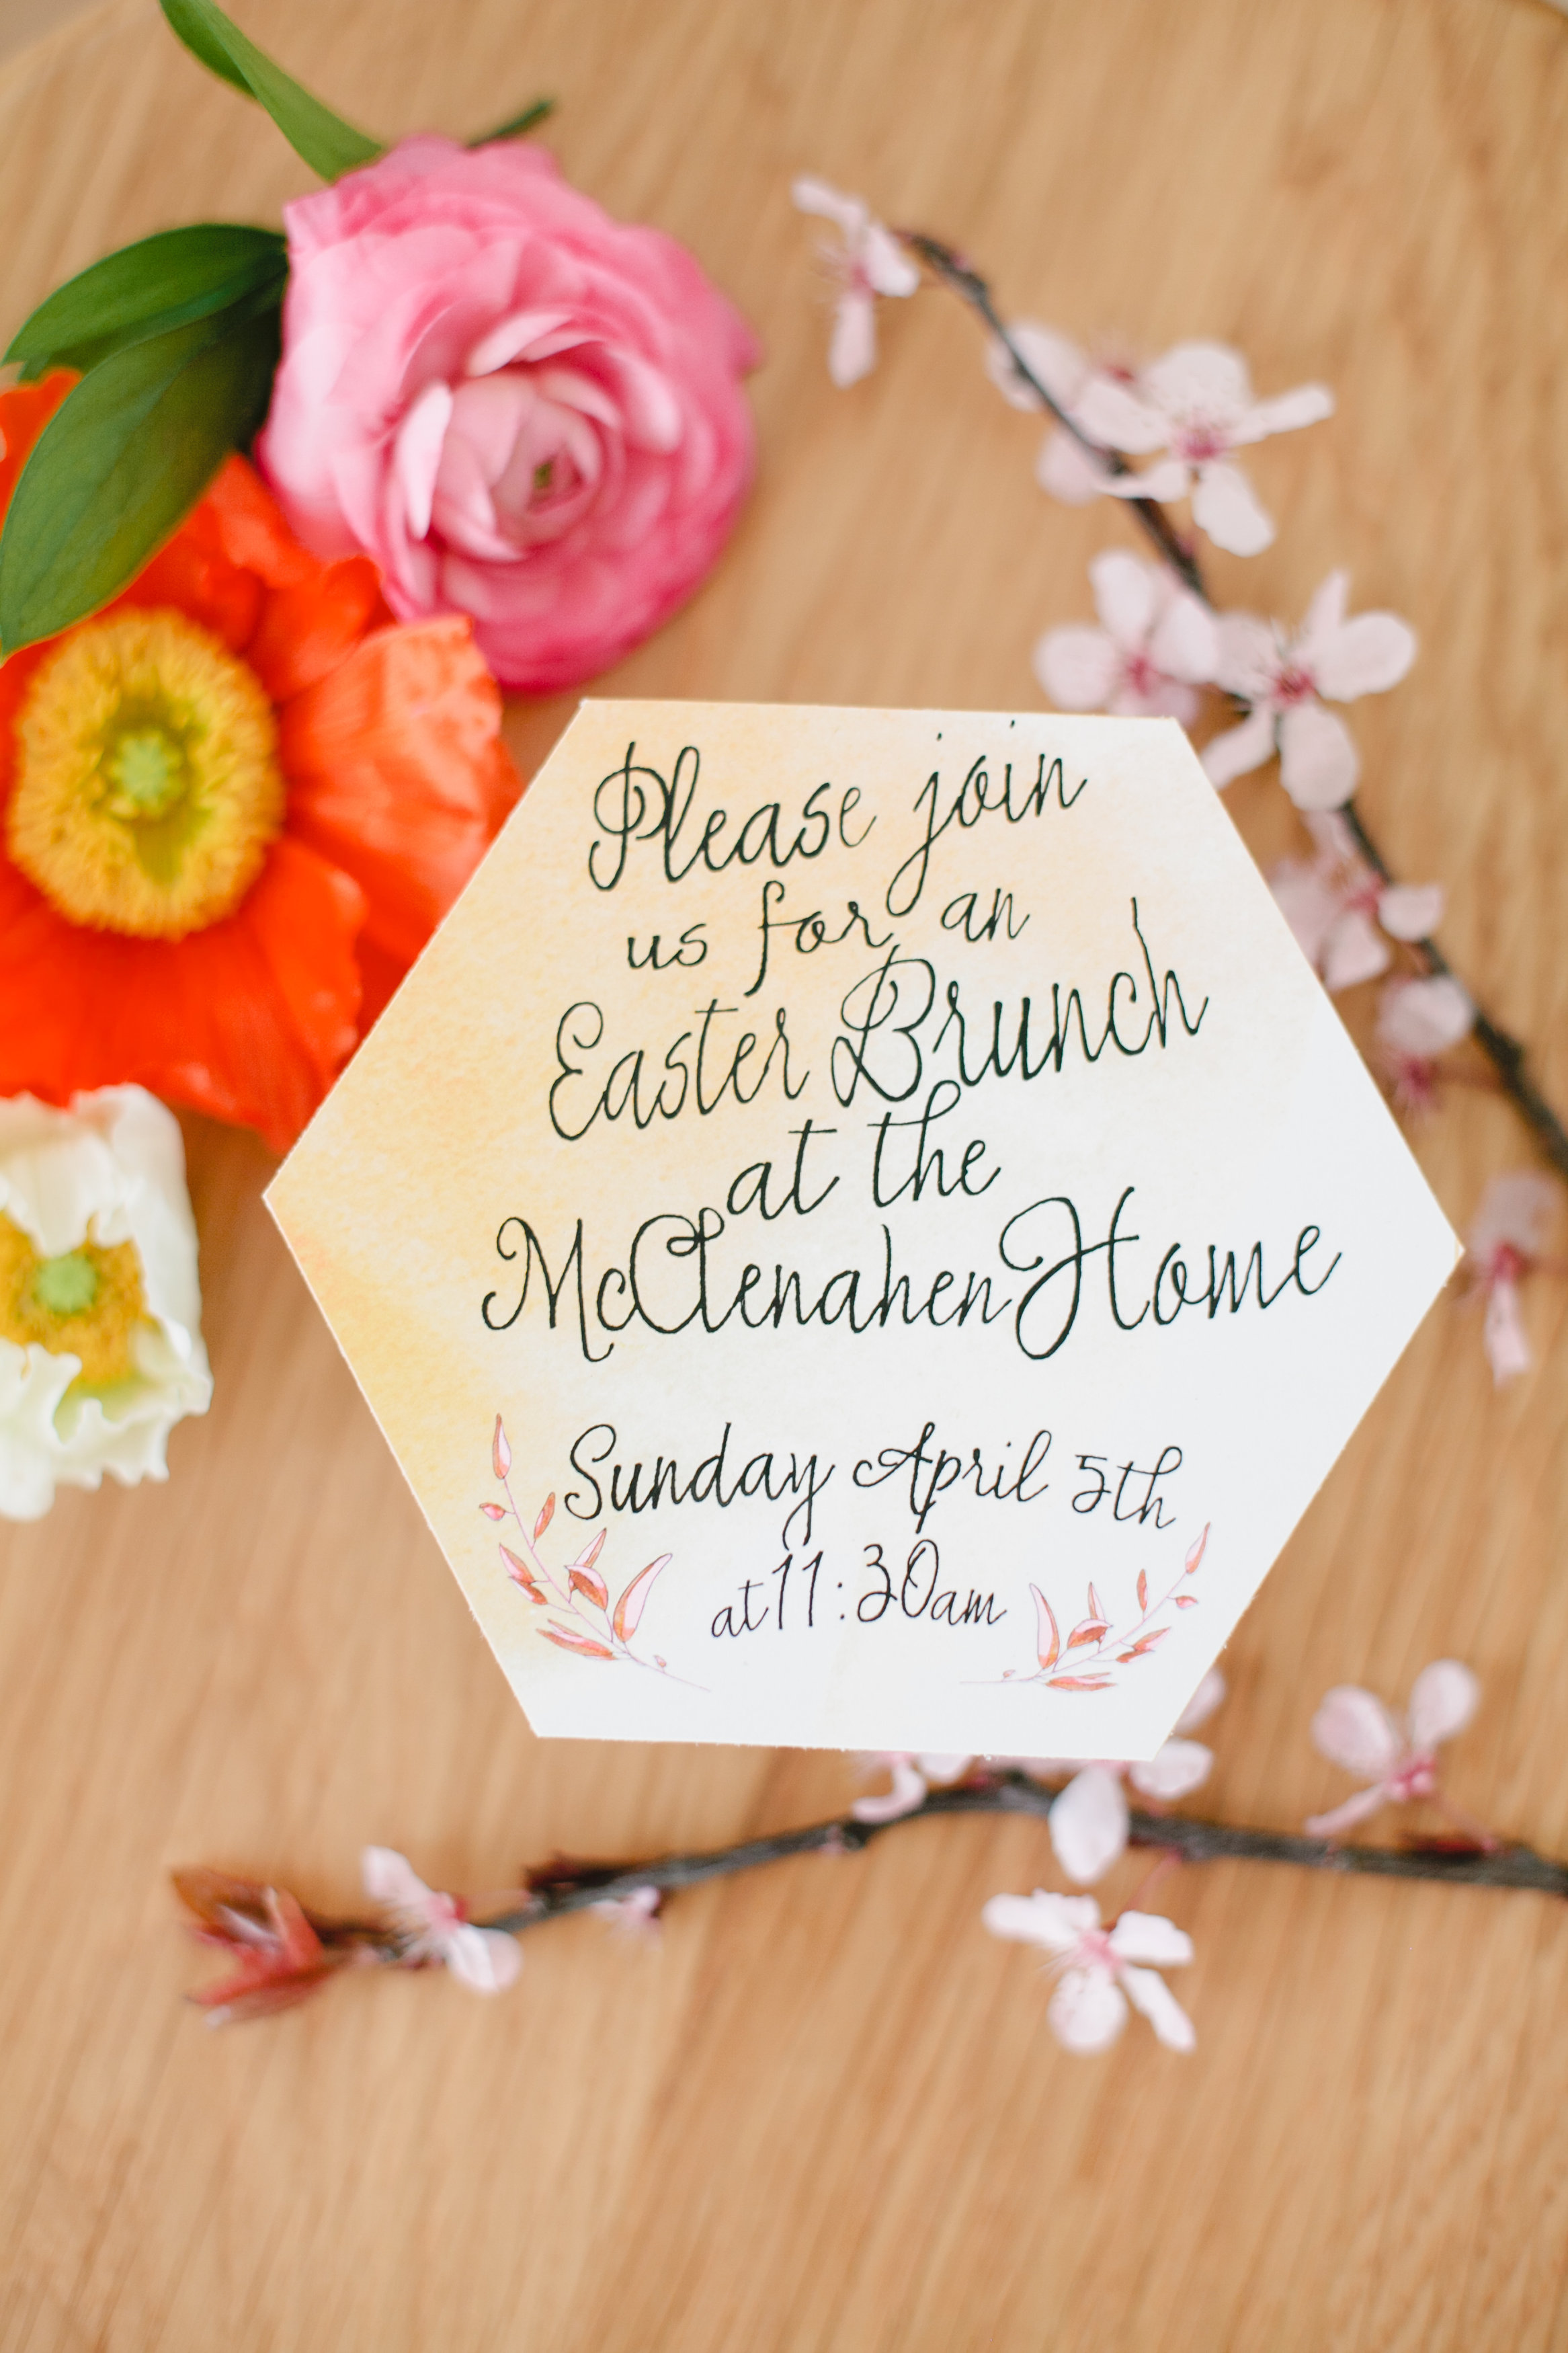 Please join
us for an
Easter Brunch
at the
McClenahen Home
Sunday April 5th
at 11:30am